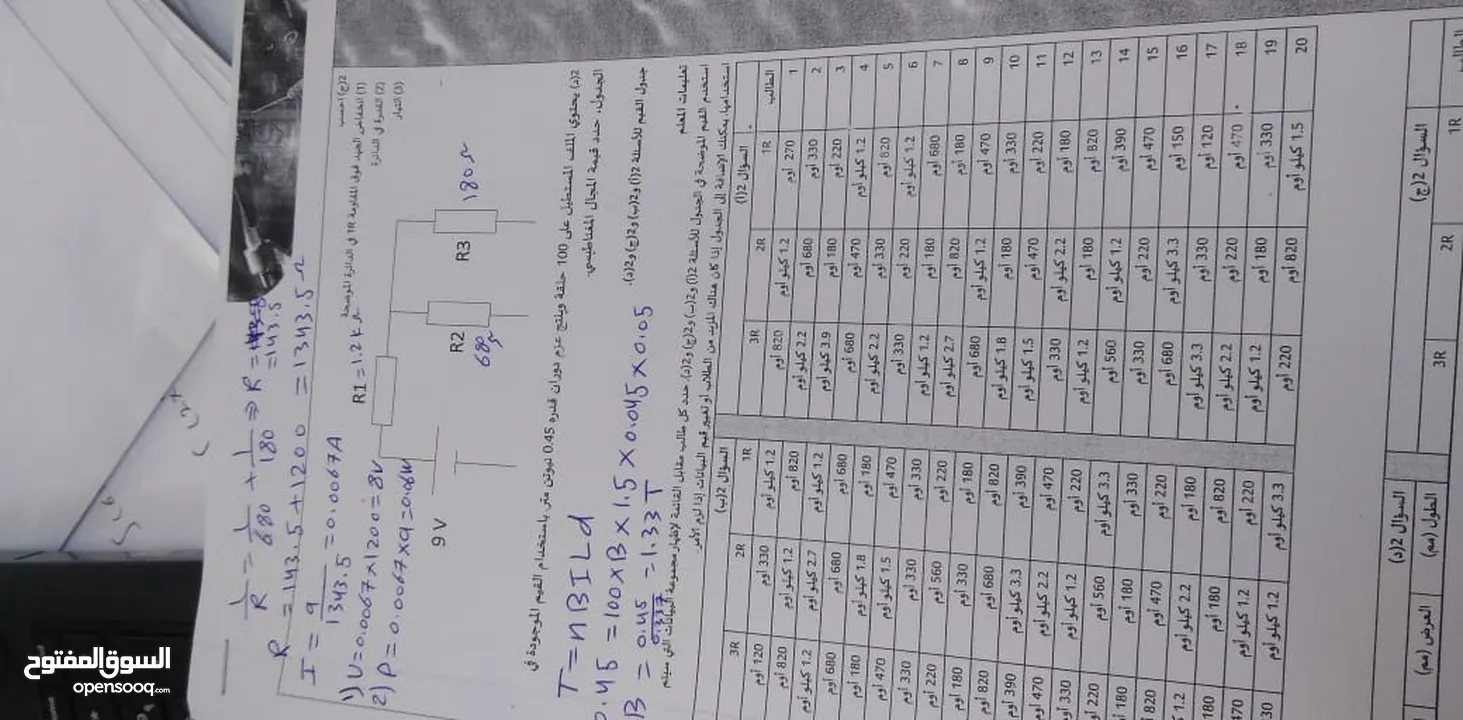 1/R = 1/680 + 1/180 ⇒ R =
= 143.5
R = 143.5 + 1200 = 1343.5 Ω
I = 9/1343.5 = 0.0067A
1) U = 0.0067 × 1200 = 8V
2) P = 0.0067 × 9 = 0.06W
2(ج) احسب
(1) انخفاض الجهد فوق المقاومة 1R في الدائرة الموضحة
(2) القدرة في الدائرة
(3) التيار
R1 = 1.2 k Ω
R2
680 Ω
R3
180 Ω
9 V
2(د) يحتوي الملف المستطيل على 100 حلقة وينتج عزم دوران قدره 0.45 نيوتن متر باستخدام القيم الموجودة في
الجدول، حدد قيمة المجال المغناطيسي.
T = n B I L d
0.45 = 100 × B × 1.5 × 0.045 × 0.05
B = 0.45 = 1.33 T
جدول القيم للأسئلة 2(أ) و2(ب) و2(ج) و2(د).
تعليمات المعلم
استخدم القيم الموضحة في الجدول للأسئلة 2(أ) و2(ب) و2(ج) و2(د). حدد كل طالب مقابل القائمة لإظهار مجموعة البيانات التي سيتم
استخدامها. يمكنك الإضافة إلى الجدول إذا كان هناك المزيد من الطلاب أو تغيير قيم البيانات إذا لزم الأمر.
السؤال 2(أ) السؤال 2(ب)
الطالب 1R 2R 3R 1R 2R 3R
1 270 أوم 1.2 كيلو أوم 820 أوم 1.2 كيلو أوم 330 أوم 120 أوم
2 330 أوم 680 أوم 2.2 كيلو أوم 820 أوم 1.2 كيلو أوم 820 أوم
3 220 أوم 180 أوم 3.9 كيلو أوم 1.2 كيلو أوم 2.7 كيلو أوم 1.2 كيلو أوم
4 1.2 كيلو أوم 470 أوم 680 أوم 680 أوم 680 أوم 680 أوم
5 820 أوم 330 أوم 2.2 كيلو أوم 180 أوم 1.8 كيلو أوم 180 أوم
6 1.2 كيلو أوم 220 أوم 330 أوم 470 أوم 1.5 كيلو أوم 470 أوم
7 680 أوم 180 أوم 1.2 كيلو أوم 330 أوم 330 أوم 330 أوم
8 180 أوم 820 أوم 2.7 كيلو أوم 220 أوم 560 أوم 220 أوم
9 470 أوم 1.2 كيلو أوم 680 أوم 180 أوم 330 أوم 180 أوم
10 330 أوم 180 أوم 1.8 كيلو أوم 820 أوم 680 أوم 820 أوم
11 220 أوم 470 أوم 1.5 كيلو أوم 390 أوم 3.3 كيلو أوم 390 أوم
12 180 أوم 2.2 كيلو أوم 330 أوم 470 أوم 2.2 كيلو أوم 470 أوم
13 820 أوم 180 أوم 1.2 كيلو أوم 220 أوم 1.2 كيلو أوم 330 أوم
14 390 أوم 1.2 كيلو أوم 560 أوم 3.3 كيلو أوم 560 أوم 220 أوم
15 470 أوم 220 أوم 330 أوم 330 أوم 180 أوم 180 أوم
16 150 أوم 3.3 كيلو أوم 680 أوم 220 أوم 470 أوم 820 أوم
17 120 أوم 330 أوم 3.3 كيلو أوم 180 أوم 2.2 كيلو أوم 1.2
18 470 أوم 220 أوم 2.2 كيلو أوم 820 أوم 180 أوم 180
19 330 أوم 180 أوم 1.2 كيلو أوم 220 أوم 1.2 كيلو أوم 470
20 1.5 كيلو أوم 820 أوم 220 أوم 3.3 كيلو أوم 1.2 كيلو أوم 30
السؤال 2(ج) السؤال 2(د)
الطالب 1R 2R 3R الطول (مم) العرض (مم)
السوق المفتوح
opensooq.com